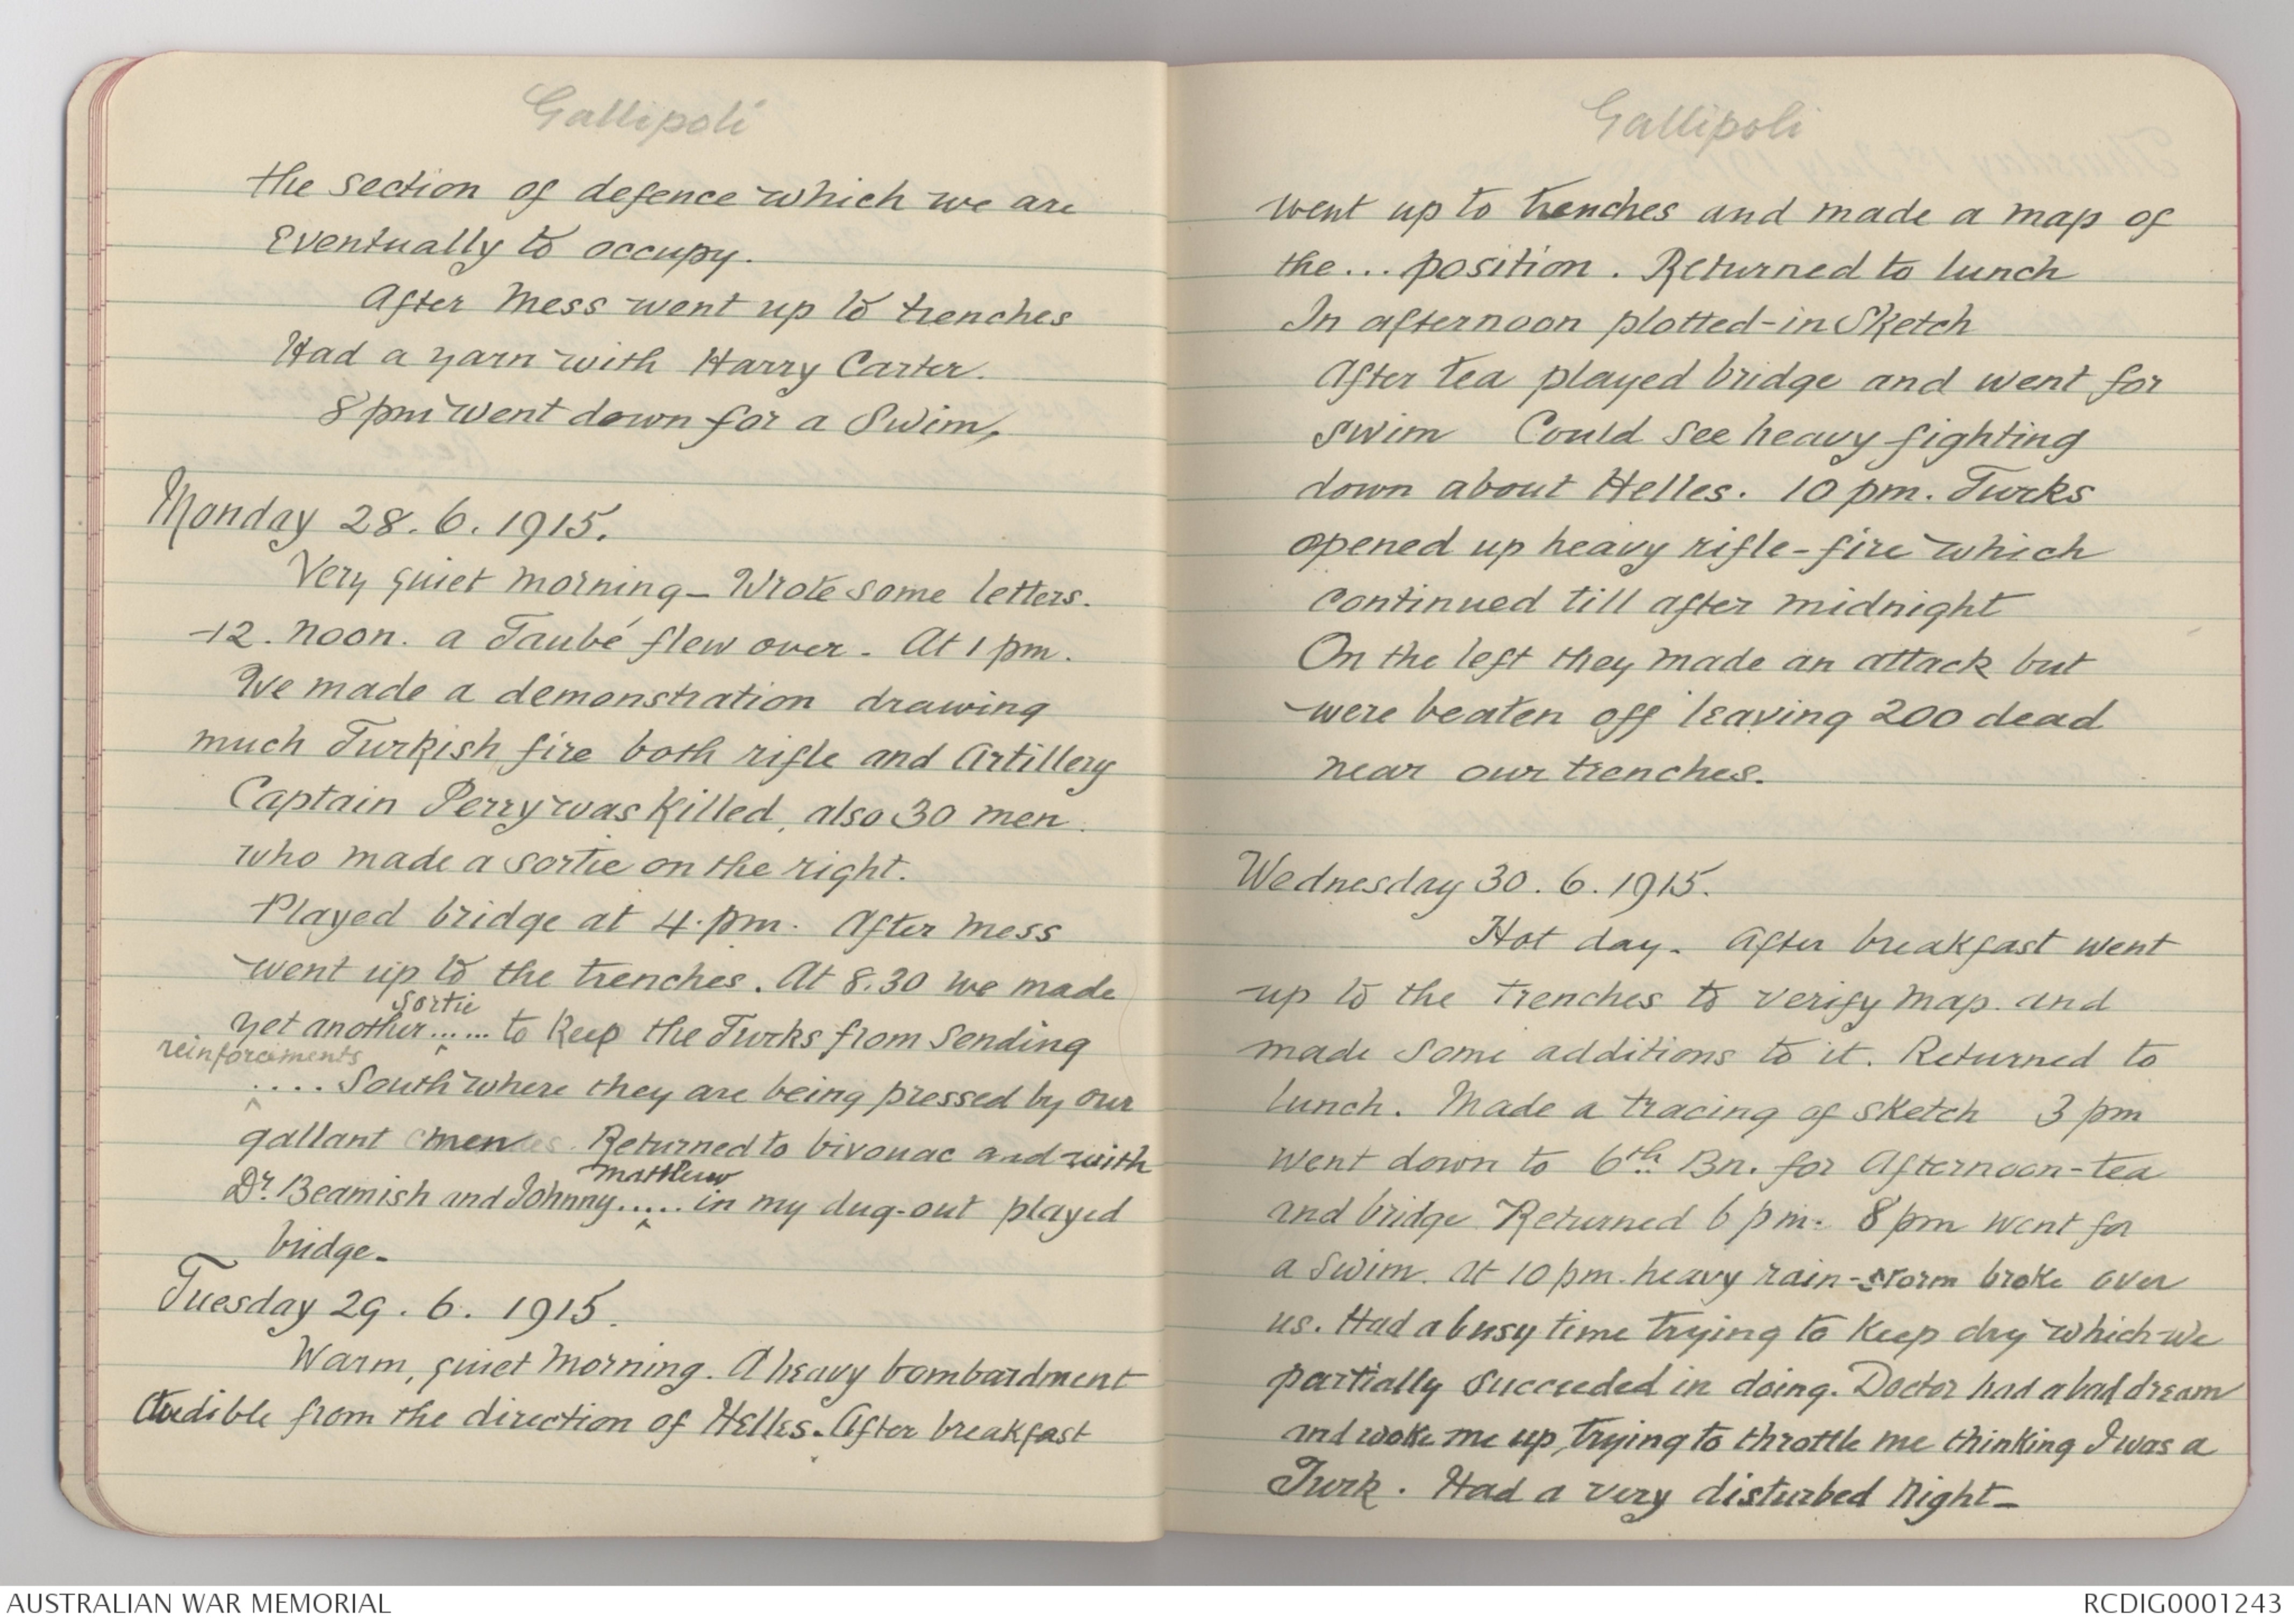 Gallipoli
the section of defence which we are
Eventually to occupy.
After Mess went up to trenches
Had a yarn with Harry Carter.
8 pm went down for a Swim,
Monday 28. 6. 1915.
Very quiet morning - Wrote some letters.
-12. noon. a Taubé flew over - At 1 pm.
We made a demonstration drawing
much Turkish fire both rifle and Artillery
Captain Perry was killed, also 30 men.
who made a sortie on the right.
Played bridge at 4. pm. After Mess
went up to the trenches. At 8.30 we made
sortie
yet another ...... to keep the Turks from sending
reinforcements
.... South where they are being pressed by our
gallant men. Returned to bivouac and with
Matthew
Dr. Beamish and Johnny ..... in my dug-out played
bridge.
Tuesday 29. 6. 1915.
Warm, quiet morning. A heavy bombardment
Audible from the direction of Helles. After breakfast
Gallipoli
went up to trenches and made a map of
the... position. Returned to lunch
In afternoon plotted-in Sketch
After tea played bridge and went for
swim Could see heavy fighting
down about Helles. 10 pm. Turks
opened up heavy rifle-fire which
continued till after midnight
On the left they made an attack but
were beaten off leaving 200 dead
near our trenches.
Wednesday 30. 6. 1915.
Hot day. After breakfast went
up to the trenches to verify map. and
made some additions to it. Returned to
lunch. Made a tracing of sketch 3 pm
went down to 6th. Bn. for Afternoon-tea
and bridge Returned 6 pm. 8 pm went for
a swim. At 10 pm. heavy rain-storm broke over
us. Had a busy time trying to keep dry which we
partially succeeded in doing. Doctor had a bad dream
and woke me up, trying to throttle me thinking I was a
Turk. Had a very disturbed night-
AUSTRALIAN WAR MEMORIAL
RCDIG0001243